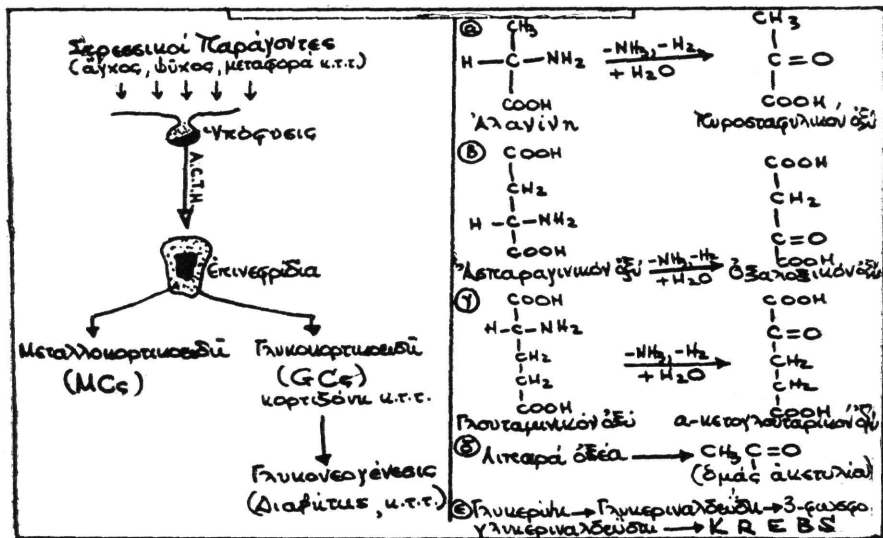 Στρεσσικοί Παράγοντες
(ἄγχος, ψῦχος, μεταφορά κ.τ.τ.)
Ὑπόφυσις
A.C.T.H
Ἐπινεφρίδια
Μεταλλοκορτικοειδῆ
(MCς)
Γλυκοκορτικοειδῆ
(GCς)
κορτιζόνη κ.τ.τ.
Γλυκονεογένεσις
(Διαβήτης, κ.τ.τ.)
α
CH3
H — C — NH2
COOH
Ἀλανίνη
-NH3, -H2
+ H2O
CH3
C = O
COOH
Πυροσταφυλικόν ὀξύ
β
COOH
CH2
H - C - NH2
COOH
Ἀσπαραγινικόν ὀξύ
-NH3, -H2
+ H2O
COOH
CH2
C = O
COOH
Ὀξαλοξικόν ὀξύ
γ
COOH
H - C - NH2
CH2
CH2
COOH
Γλουταμινικόν ὀξύ
-NH3, -H2
+ H2O
COOH
C = O
CH2
CH2
COOH
α-κετογλουταρικόν ὀξύ
δ Λιπαρά ὀξέα → CH3 C = O
(ὁμάς ἀκετυλίου)
ε Γλυκερίνη → Γλυκεριναλδεΰδη → 3-φωσφο
γλυκεριναλδεΰδη → K R E B S